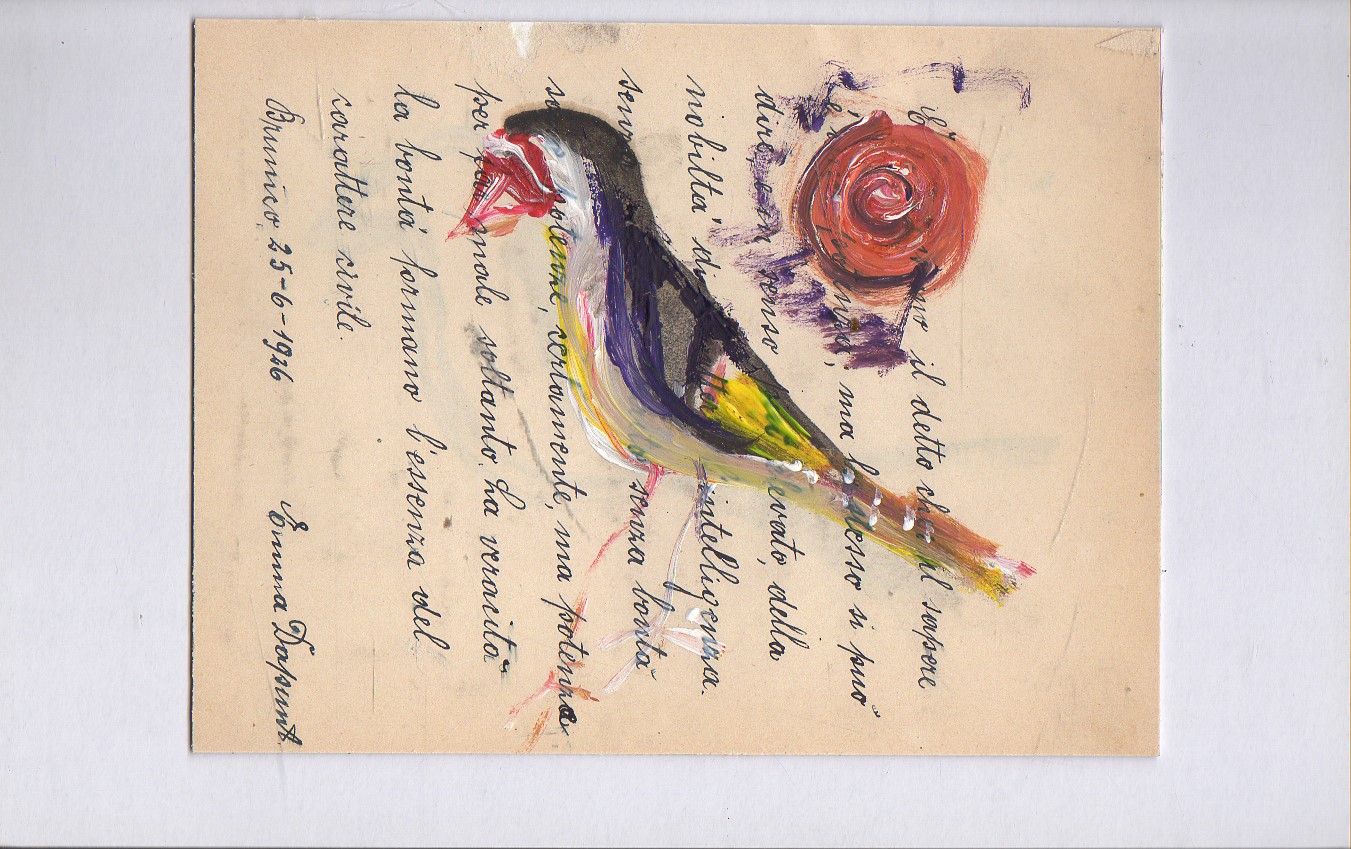 E' il detto che il sapere
è ma si può
dire, con senso della
nobiltà di intelligenza.
senza bontà
certamente, ma potenze
per male soltanto. La veracità
la bontà formano l'essenza del
carattere civile.
Brunico, 25-6-1926 Emma Dapunt